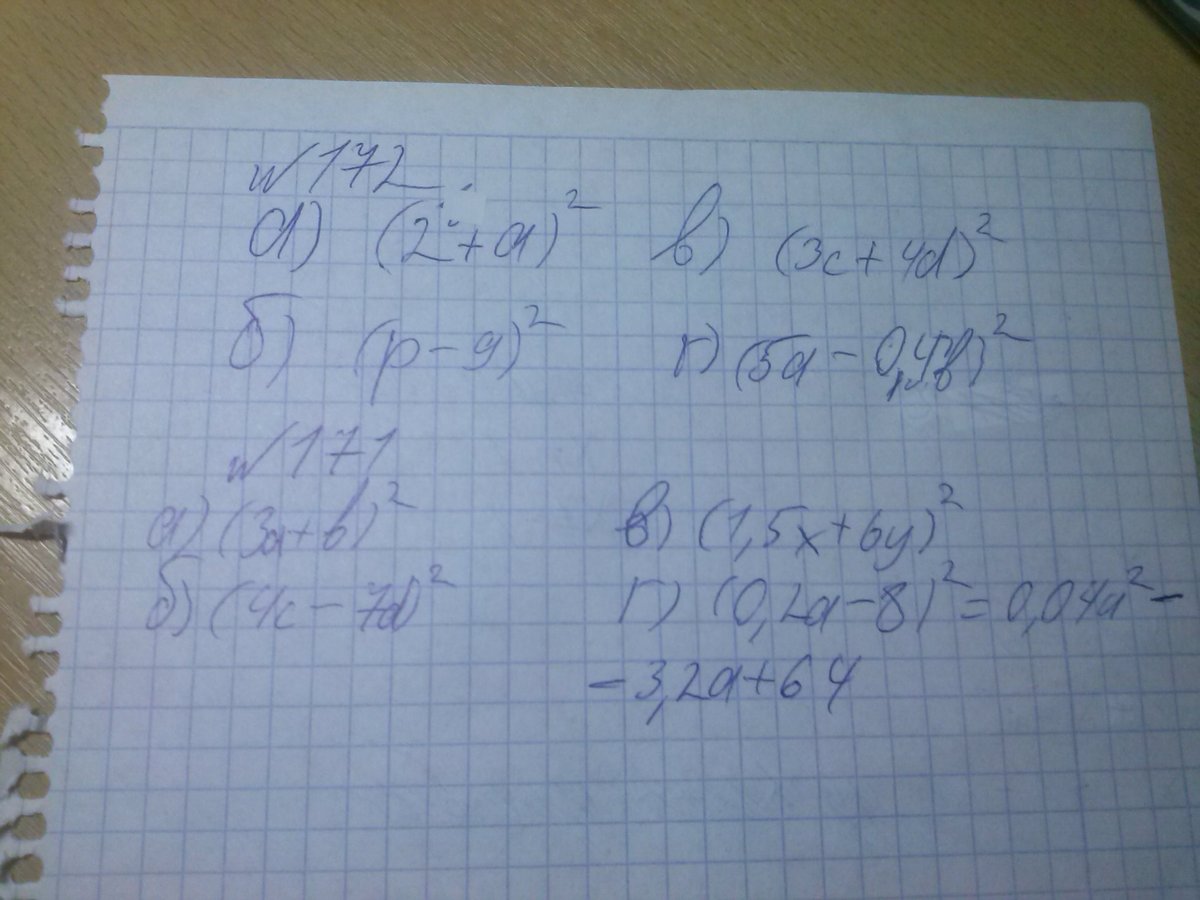 №172.
а) (2+a)² в) (3c+4d)²
б) (p-9)² г) (5a-0,4b)²
№171
а) (3a+b)² в) (1,5x+6y)²
б) (4c-7d)² г) (0,2a-8)²=0,04a²-
-3,2a+64